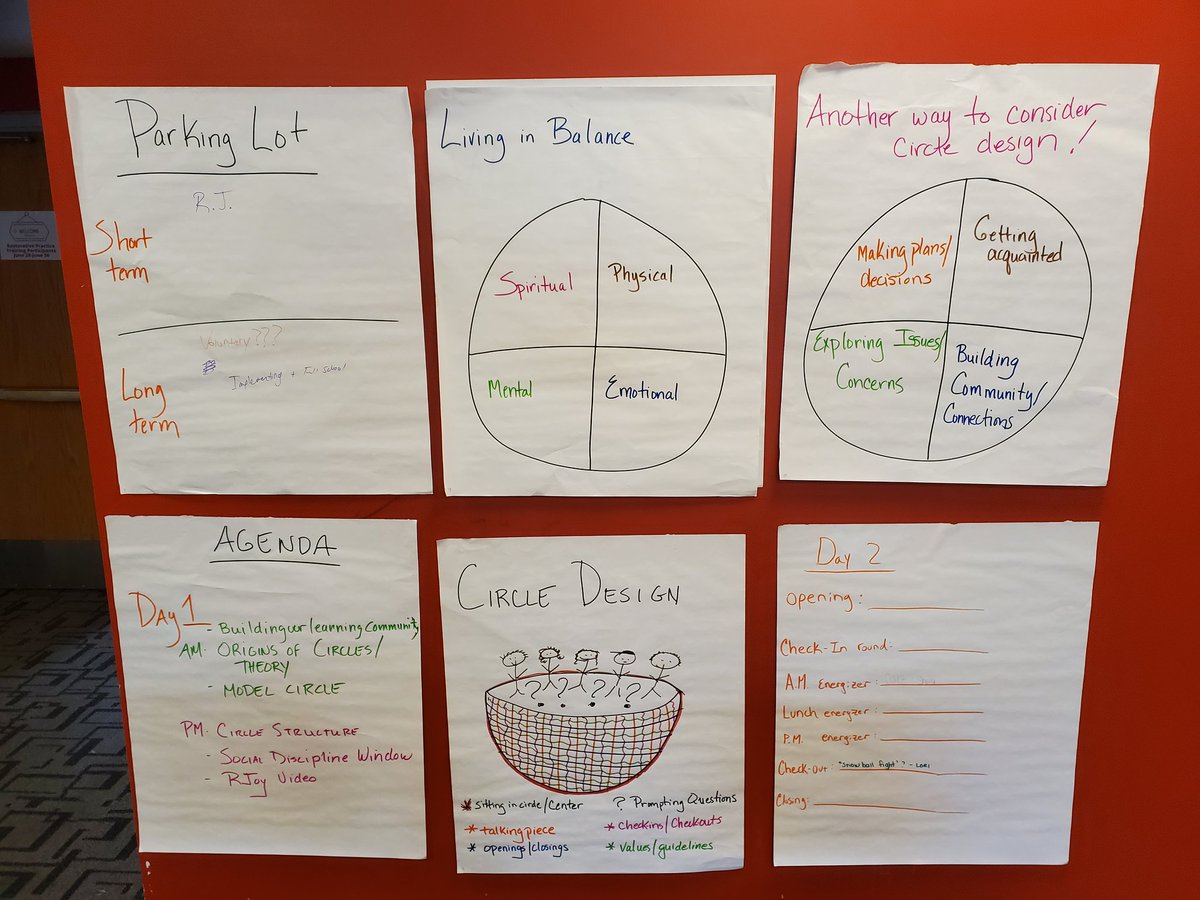 Parking Lot
R.J.
Short
term
Voluntary???
Implementing + Full School
Long
term
Living in Balance
Spiritual
Physical
Mental
Emotional
Another way to consider
Circle design!
Making plans/
decisions
Getting
acquainted
Exploring Issues/
Concerns
Building
Community/
Connections
WELCOME
Restorative Practice
Training Participants
AGENDA
DAY 1
- Building our learning Community
AM: ORIGINS OF CIRCLES/
THEORY
- MODEL CIRCLE
PM: CIRCLE STRUCTURE
- SOCIAL DISCIPLINE WINDOW
- RJoy Video
CIRCLE DESIGN
? ? ? ? ?
* sitting in circle/center
* talking piece
* openings/closings
? Prompting Questions
* Checkins/Checkouts
* values/guidelines
Day 2
Opening:
Check-In round-
A.M. Energizer:
Lunch energizer:
P.M. energizer:
Check-out: "snowball fight"? - Lori
Closing: